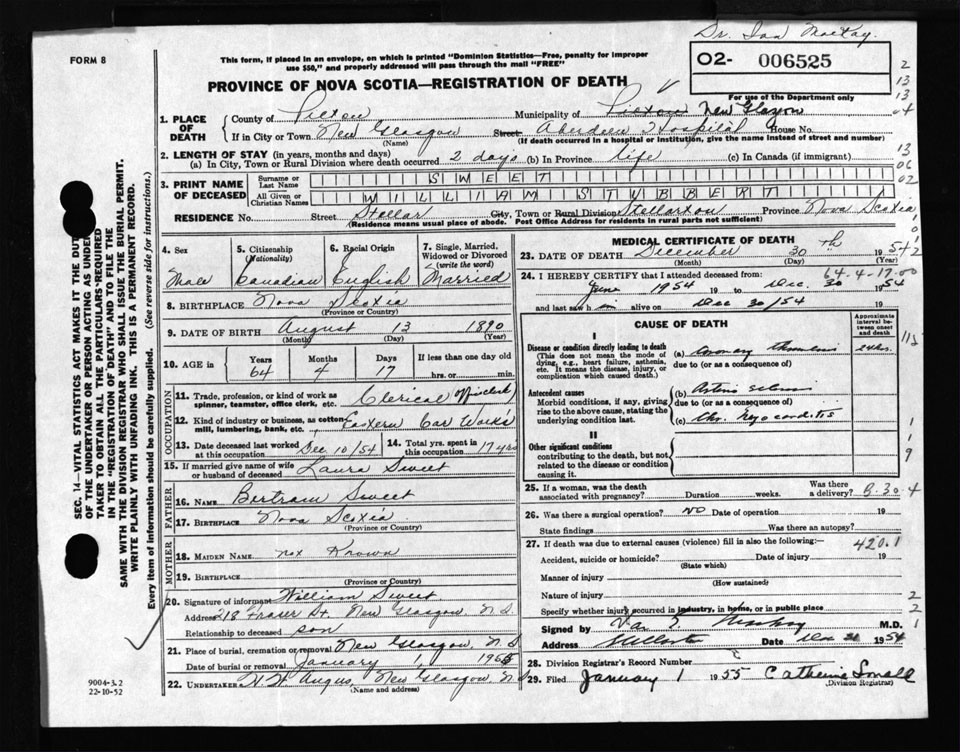 Dr. Ian MacKay.
FORM 8
This form, if placed in an envelope, on which is printed "Dominion Statistics—Free, penalty for improper
use $50," and properly addressed will pass through the mail "FREE"
02- 006525
For use of the Department only
PROVINCE OF NOVA SCOTIA—REGISTRATION OF DEATH
1. PLACE OF DEATH
County of Pictou Municipality of Pictou New Glasgow
If in City or Town New Glasgow Street Aberdeen Hospital House No.
(Name) (If death occurred in a hospital or institution, give the name instead of street and number)
2. LENGTH OF STAY (in years, months and days)
(a) In City, Town or Rural Division where death occurred 2 days (b) In Province life (c) In Canada (if immigrant)
3. PRINT NAME OF DECEASED
Surname or Last Name SWEET
All Given or Christian Names WILLIAM STUBBERT
RESIDENCE No. Street Stellar City, Town or Rural Division Stellarton Province Nova Scotia
(Residence means usual place of abode. Post Office Address for residents in rural parts not sufficient)
4. Sex Male
5. Citizenship (Nationality) Canadian
6. Racial Origin English
7. Single, Married, Widowed or Divorced (write the word) Married
8. BIRTHPLACE Nova Scotia
(Province or Country)
9. DATE OF BIRTH August 13 1890
(Month) (Day) (Year)
10. AGE in Years 64 Months 4 Days 17 If less than one day old hrs. or min.
OCCUPATION
11. Trade, profession, or kind of work as spinner, teamster, office clerk, etc. Clerical (office clerk)
12. Kind of industry or business, as cotton mill, lumbering, bank, etc. Eastern Car Works
13. Date deceased last worked at this occupation Dec 10/54
14. Total yrs. spent in this occupation 17 yrs
15. If married give name of wife or husband of deceased Laura Sweet
FATHER
16. NAME Bertram Sweet
17. BIRTHPLACE Nova Scotia
(Province or Country)
MOTHER
18. MAIDEN NAME not Known
19. BIRTHPLACE
(Province or Country)
20. Signature of informant William Sweet
Address 218 Fraser St. New Glasgow, N.S.
Relationship to deceased son
21. Place of burial, cremation or removal New Glasgow, N.S
Date of burial or removal January 1 1955
22. UNDERTAKER H. W. Angus, New Glasgow, N.S
(Name and address)
MEDICAL CERTIFICATE OF DEATH
23. DATE OF DEATH December 30th 1954
(Month) (Day) (Year)
64-4-17-00
24. I HEREBY CERTIFY that I attended deceased from
June 1954 to Dec. 30 1954
and last saw him alive on Dec 30/54
CAUSE OF DEATH
Approximate interval between onset and death
I
Disease or condition directly leading to death
(This does not mean the mode of dying, e.g., heart failure, asthenia, etc. It means the disease, injury, or complication which caused death.)
(a) Coronary thrombosis 24 hrs.
due to (or as a consequence of)
Antecedent causes
Morbid conditions, if any, giving rise to the above cause, stating the underlying condition last.
(b) Arterio sclerosis
due to (or as a consequence of)
(c) Chr. Myocarditis
II
Other significant conditions
contributing to the death, but not related to the disease or condition causing it.
25. If a woman, was the death associated with pregnancy? Duration weeks. Was there a delivery?
26. Was there a surgical operation? NO Date of operation 19
State findings Was there an autopsy?
27. If death was due to external causes (violence) fill in also the following:— 420.1
Accident, suicide or homicide? Date of injury 19
(State which)
Manner of injury
(How sustained)
Nature of injury
Specify whether injury occurred in industry, in home, or in public place
Signed by M.D.
Address Stellarton Date Dec 31 1954
28. Division Registrar's Record Number
29. Filed January 1 1955 Catherine Small
(Division Registrar)
SEC. 14—VITAL STATISTICS ACT MAKES IT THE DUTY
OF THE UNDERTAKER OR PERSON ACTING AS UNDER-
TAKER TO OBTAIN ALL THE PARTICULARS REQUIRED
IN THE "REGISTRATION OF DEATH" AND TO FILE THE
SAME WITH THE DIVISION REGISTRAR WHO SHALL ISSUE THE BURIAL PERMIT.
WRITE PLAINLY WITH UNFADING INK. THIS IS A PERMANENT RECORD.
Every item of information should be carefully supplied. (See reverse side for instructions.)
9004-3.2
22-10-52